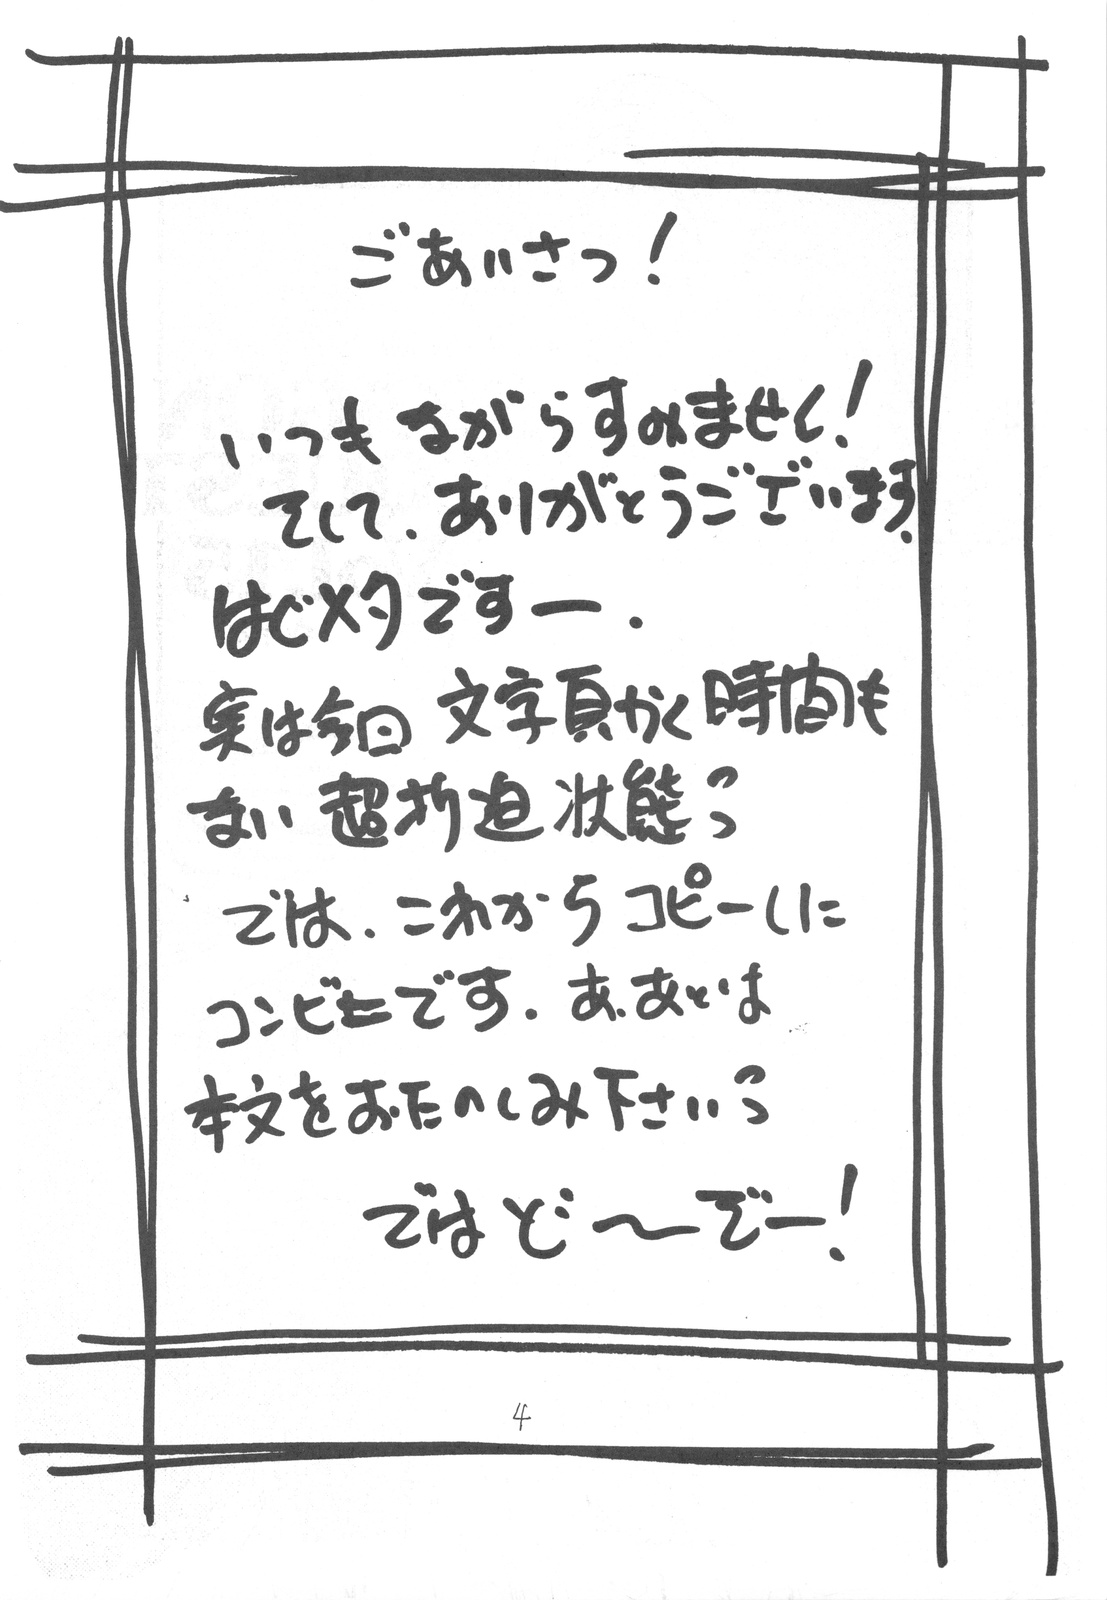 ごあいさつ！
いつもながらすみません！
そして、ありがとうございます。
はじメタですー．
実は今回 文字頁かく時間も
ない 超切迫状態っ
では、これからコピーしに
コンビニです．あ、あとは
本文をおたのしみ下さいっ
ではど〜ぞー！
4